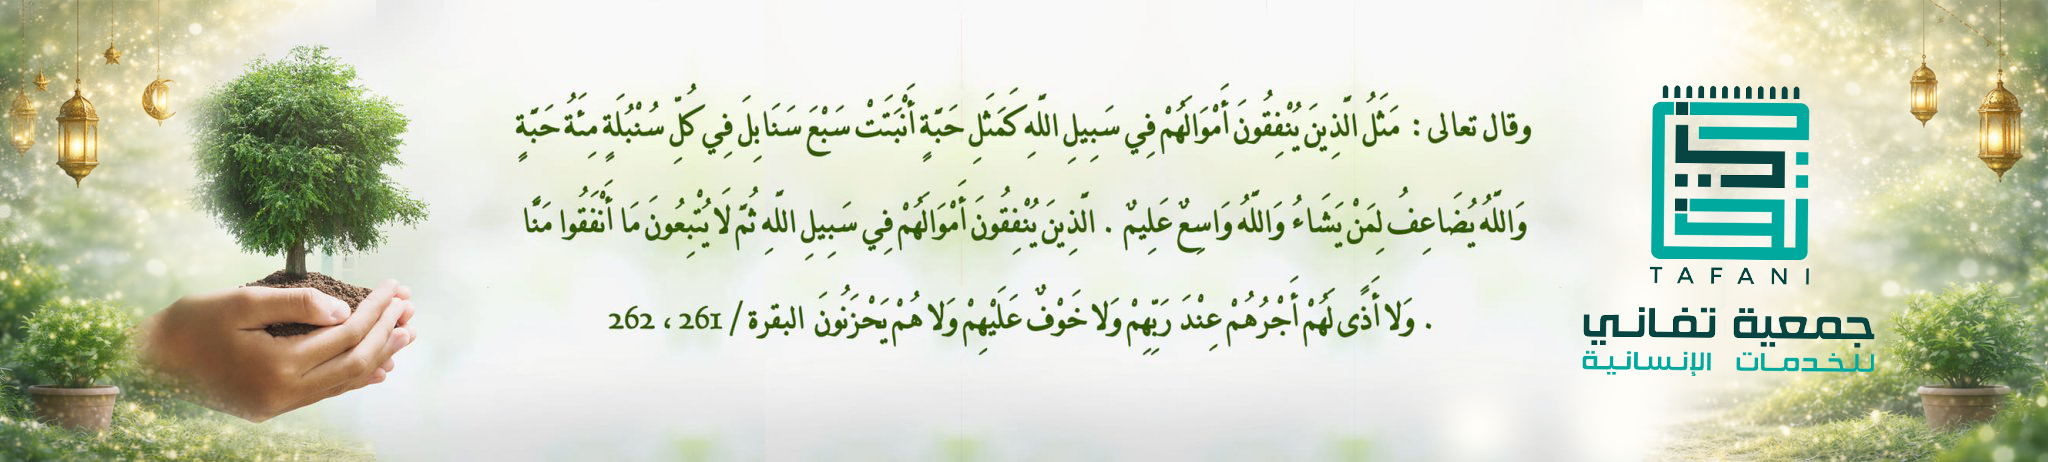 وقال تعالى : مَثَلُ الَّذِينَ يُنْفِقُونَ أَمْوَالَهُمْ فِي سَبِيلِ اللَّهِ كَمَثَلِ حَبَّةٍ أَنْبَتَتْ سَبْعَ سَنَابِلَ فِي كُلِّ سُنْبُلَةٍ مِئَةُ حَبَّةٍ
وَاللَّهُ يُضَاعِفُ لِمَنْ يَشَاءُ وَاللَّهُ وَاسِعٌ عَلِيمٌ . الَّذِينَ يُنْفِقُونَ أَمْوَالَهُمْ فِي سَبِيلِ اللَّهِ ثُمَّ لَا يُتْبِعُونَ مَا أَنْفَقُوا مَنًّا
. وَلا أَذًى لَهُمْ أَجْرُهُمْ عِنْدَ رَبِّهِمْ وَلا خَوْفٌ عَلَيْهِمْ وَلا هُمْ يَحْزَنُونَ البقرة / 261 ، 262
TAFANI
جمعية تفاني
للخدمات الإنسانية